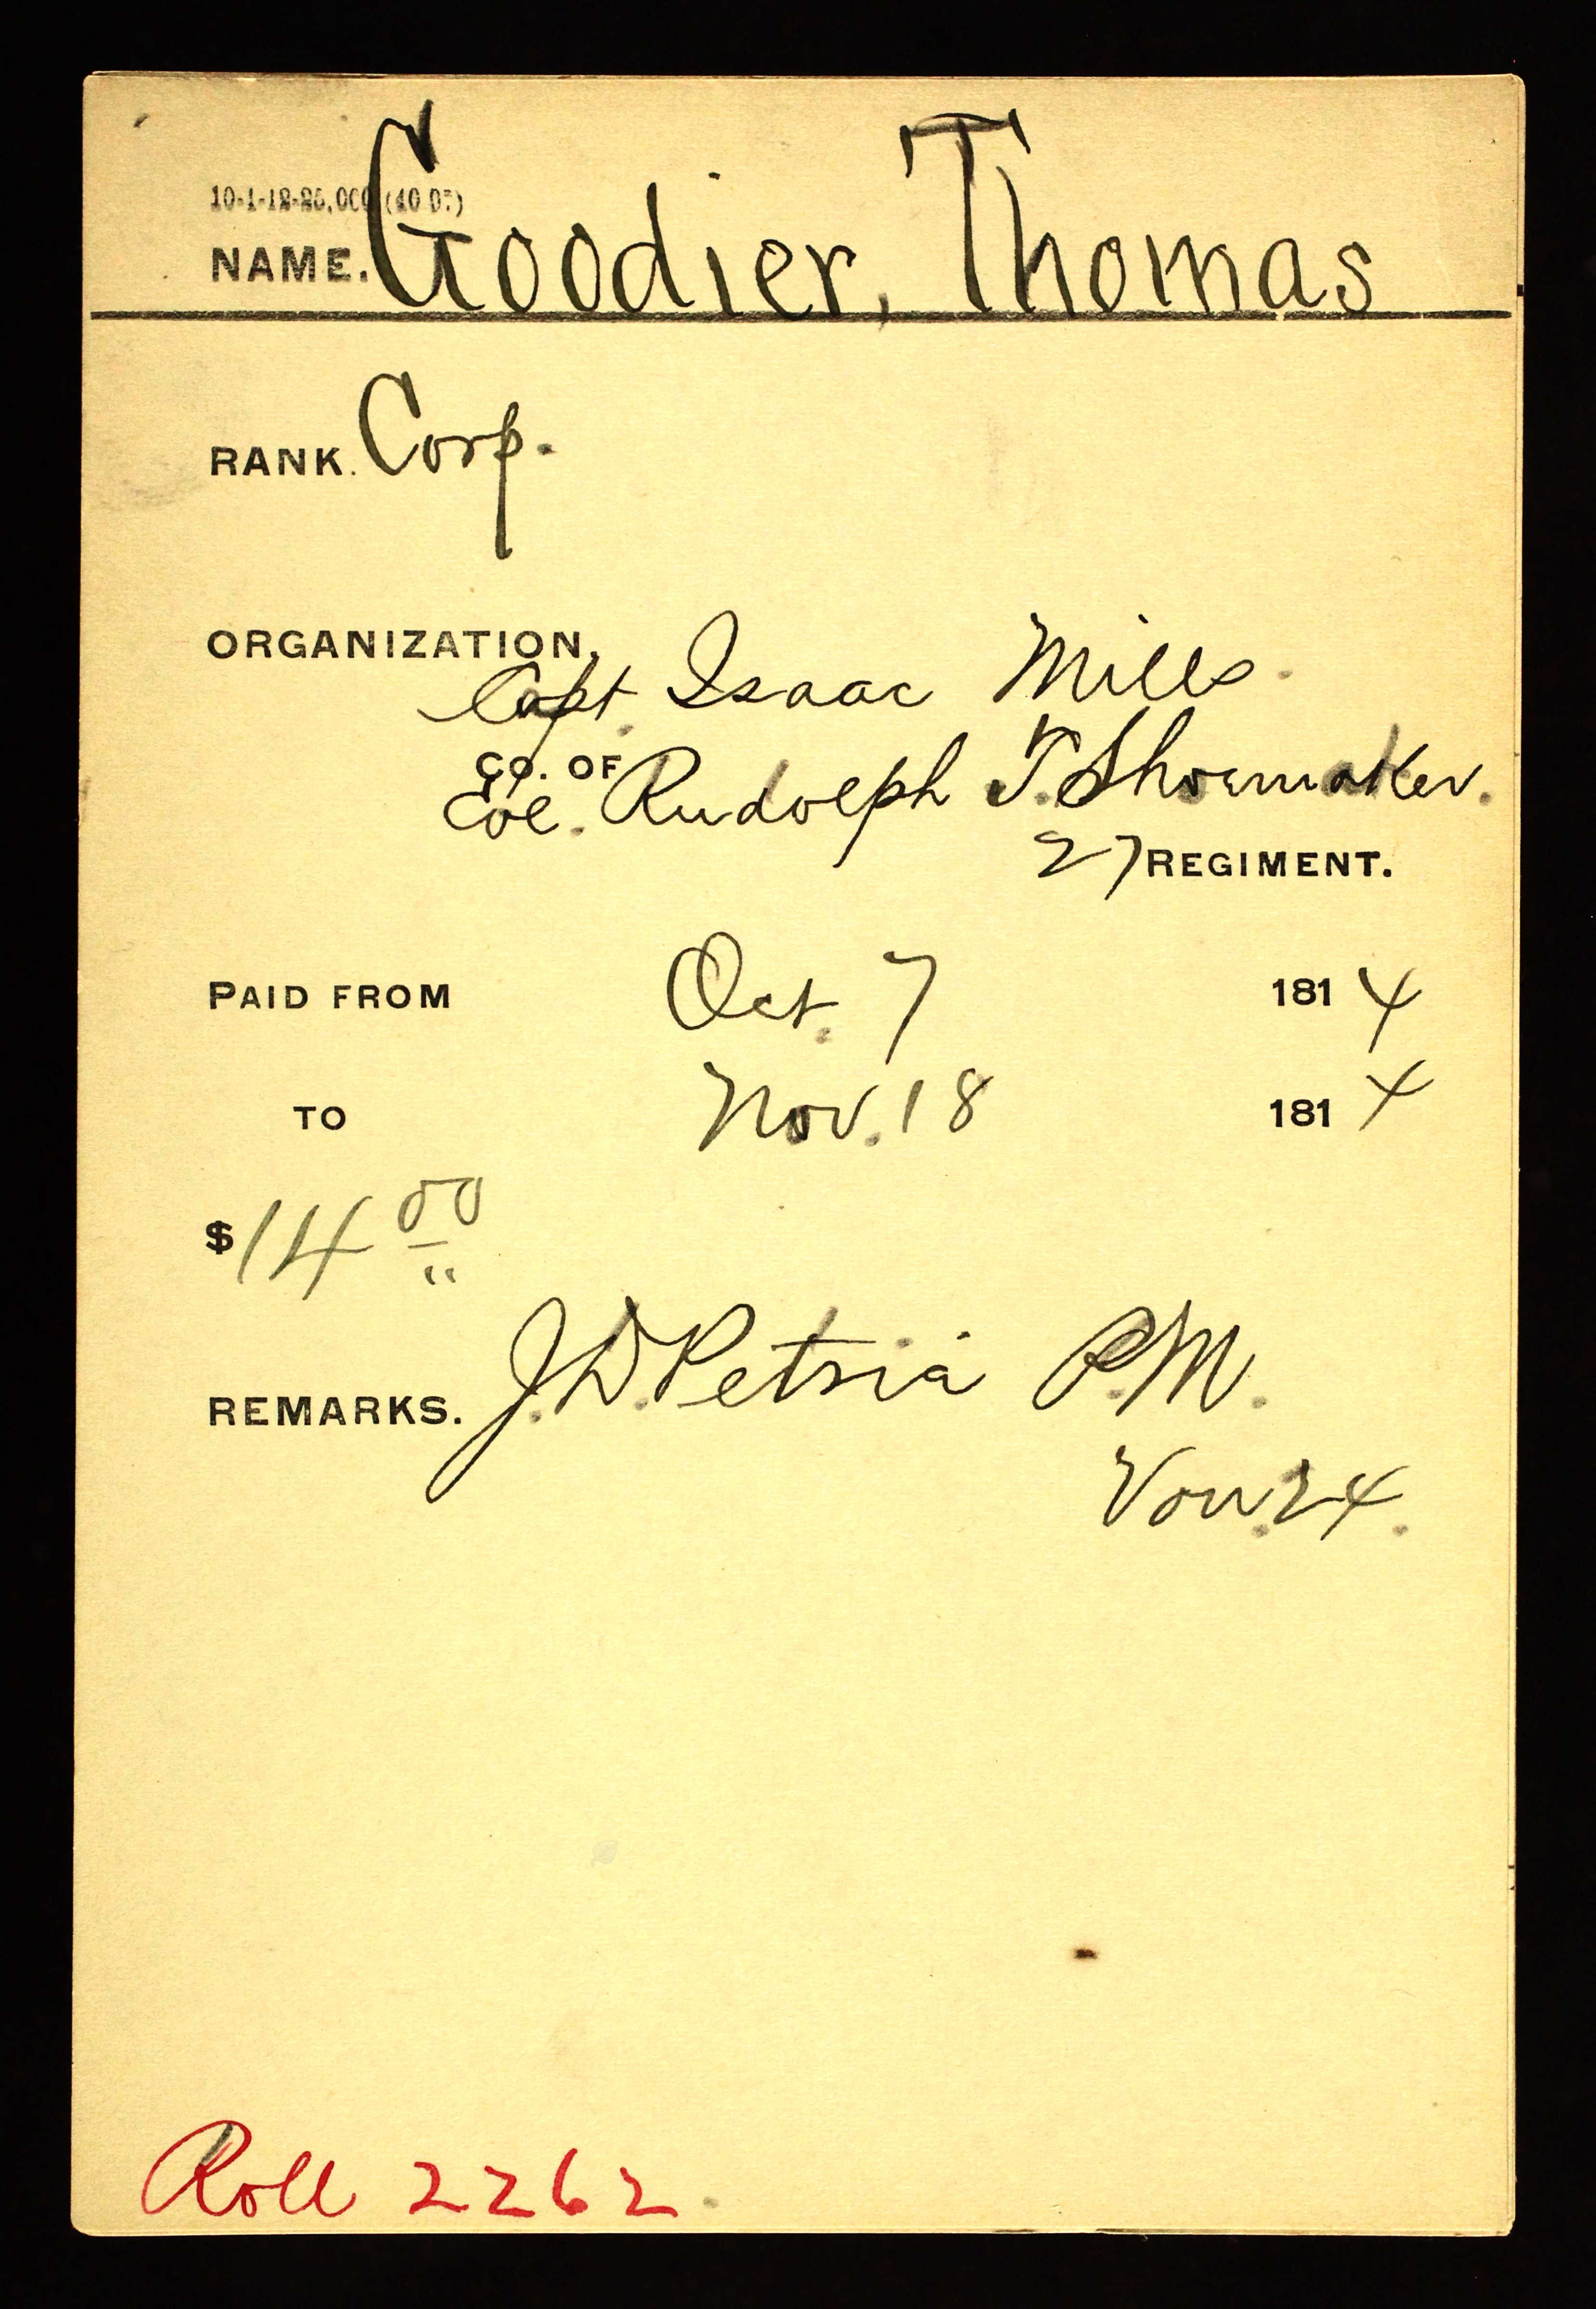 10-1-12-25,000 (40 D7)
NAME. Goodier, Thomas
RANK. Corp.
ORGANIZATION.
Capt. Isaac Mills.
CO. OF
Col. Rudolph T. Shoemaker.
27 REGIMENT.
PAID FROM Oct. 7 1814
TO Nov. 18 1814
$14 00
REMARKS. J. D. Petrie P. M.
Vou. 24.
Roll 2262.